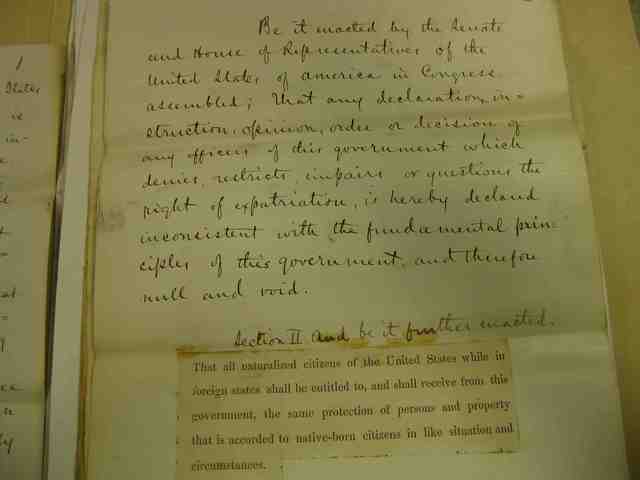 Be it enacted by the Senate
and House of Representatives of the
United States of america in Congress
assembled; That any declaration, in=
struction, opinion, order or decision of
any officers of this government which
denies, restricts, impairs or questions the
right of expatriation, is hereby declared
inconsistent with the fundamental prin=
ciples of this government, and therefore
null and void.
Section II And be it further enacted,
That all naturalized citizens of the United States while in
foreign states shall be entitled to, and shall receive from this
government, the same protection of persons and property
that is accorded to native-born citizens in like situation and
circumstances.
1
States
in-